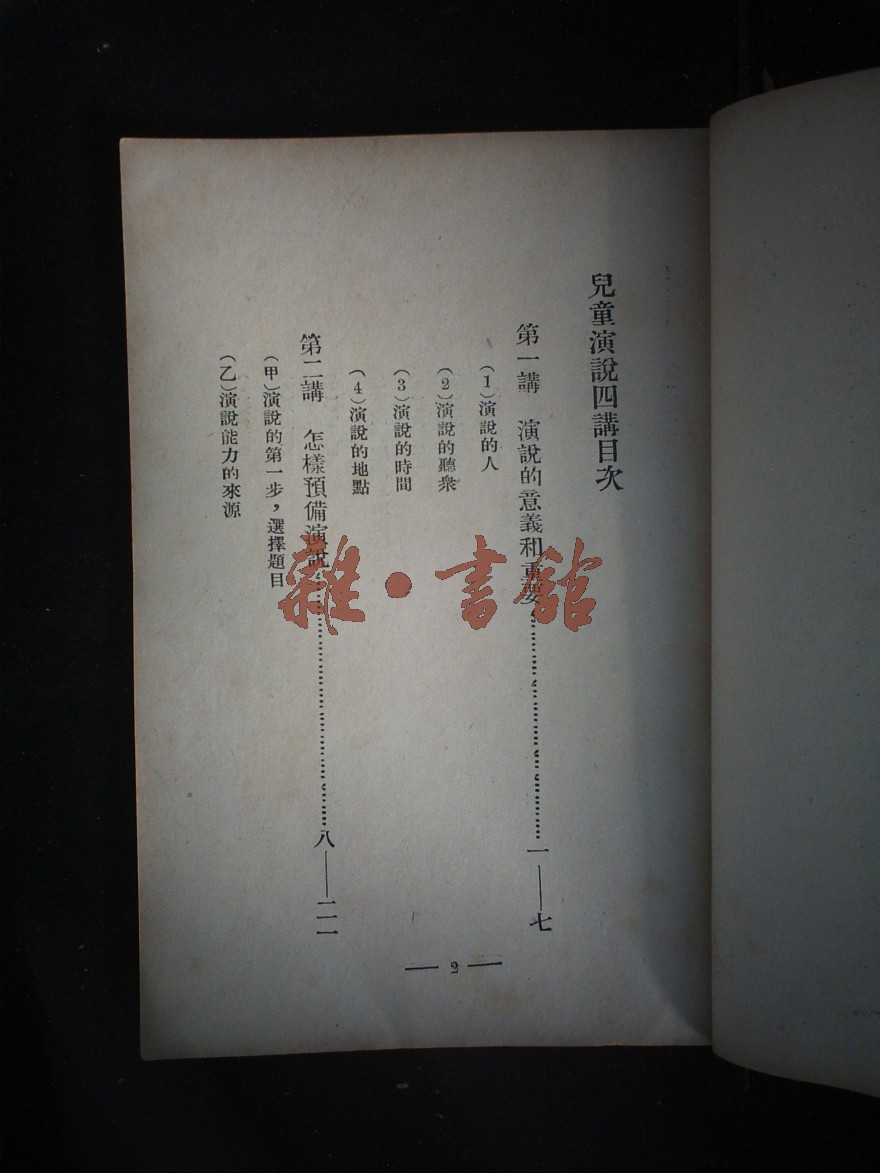 兒童演說四講目次
第一講　演說的意義和重要…………一——七
（1）演說的人
（2）演說的聽衆
（3）演說的時間
（4）演說的地點
第二講　怎樣預備演說…………八——二一
（甲）演說的第一步，選擇題目
（乙）演說能力的來源
— 2 —
雜·書館